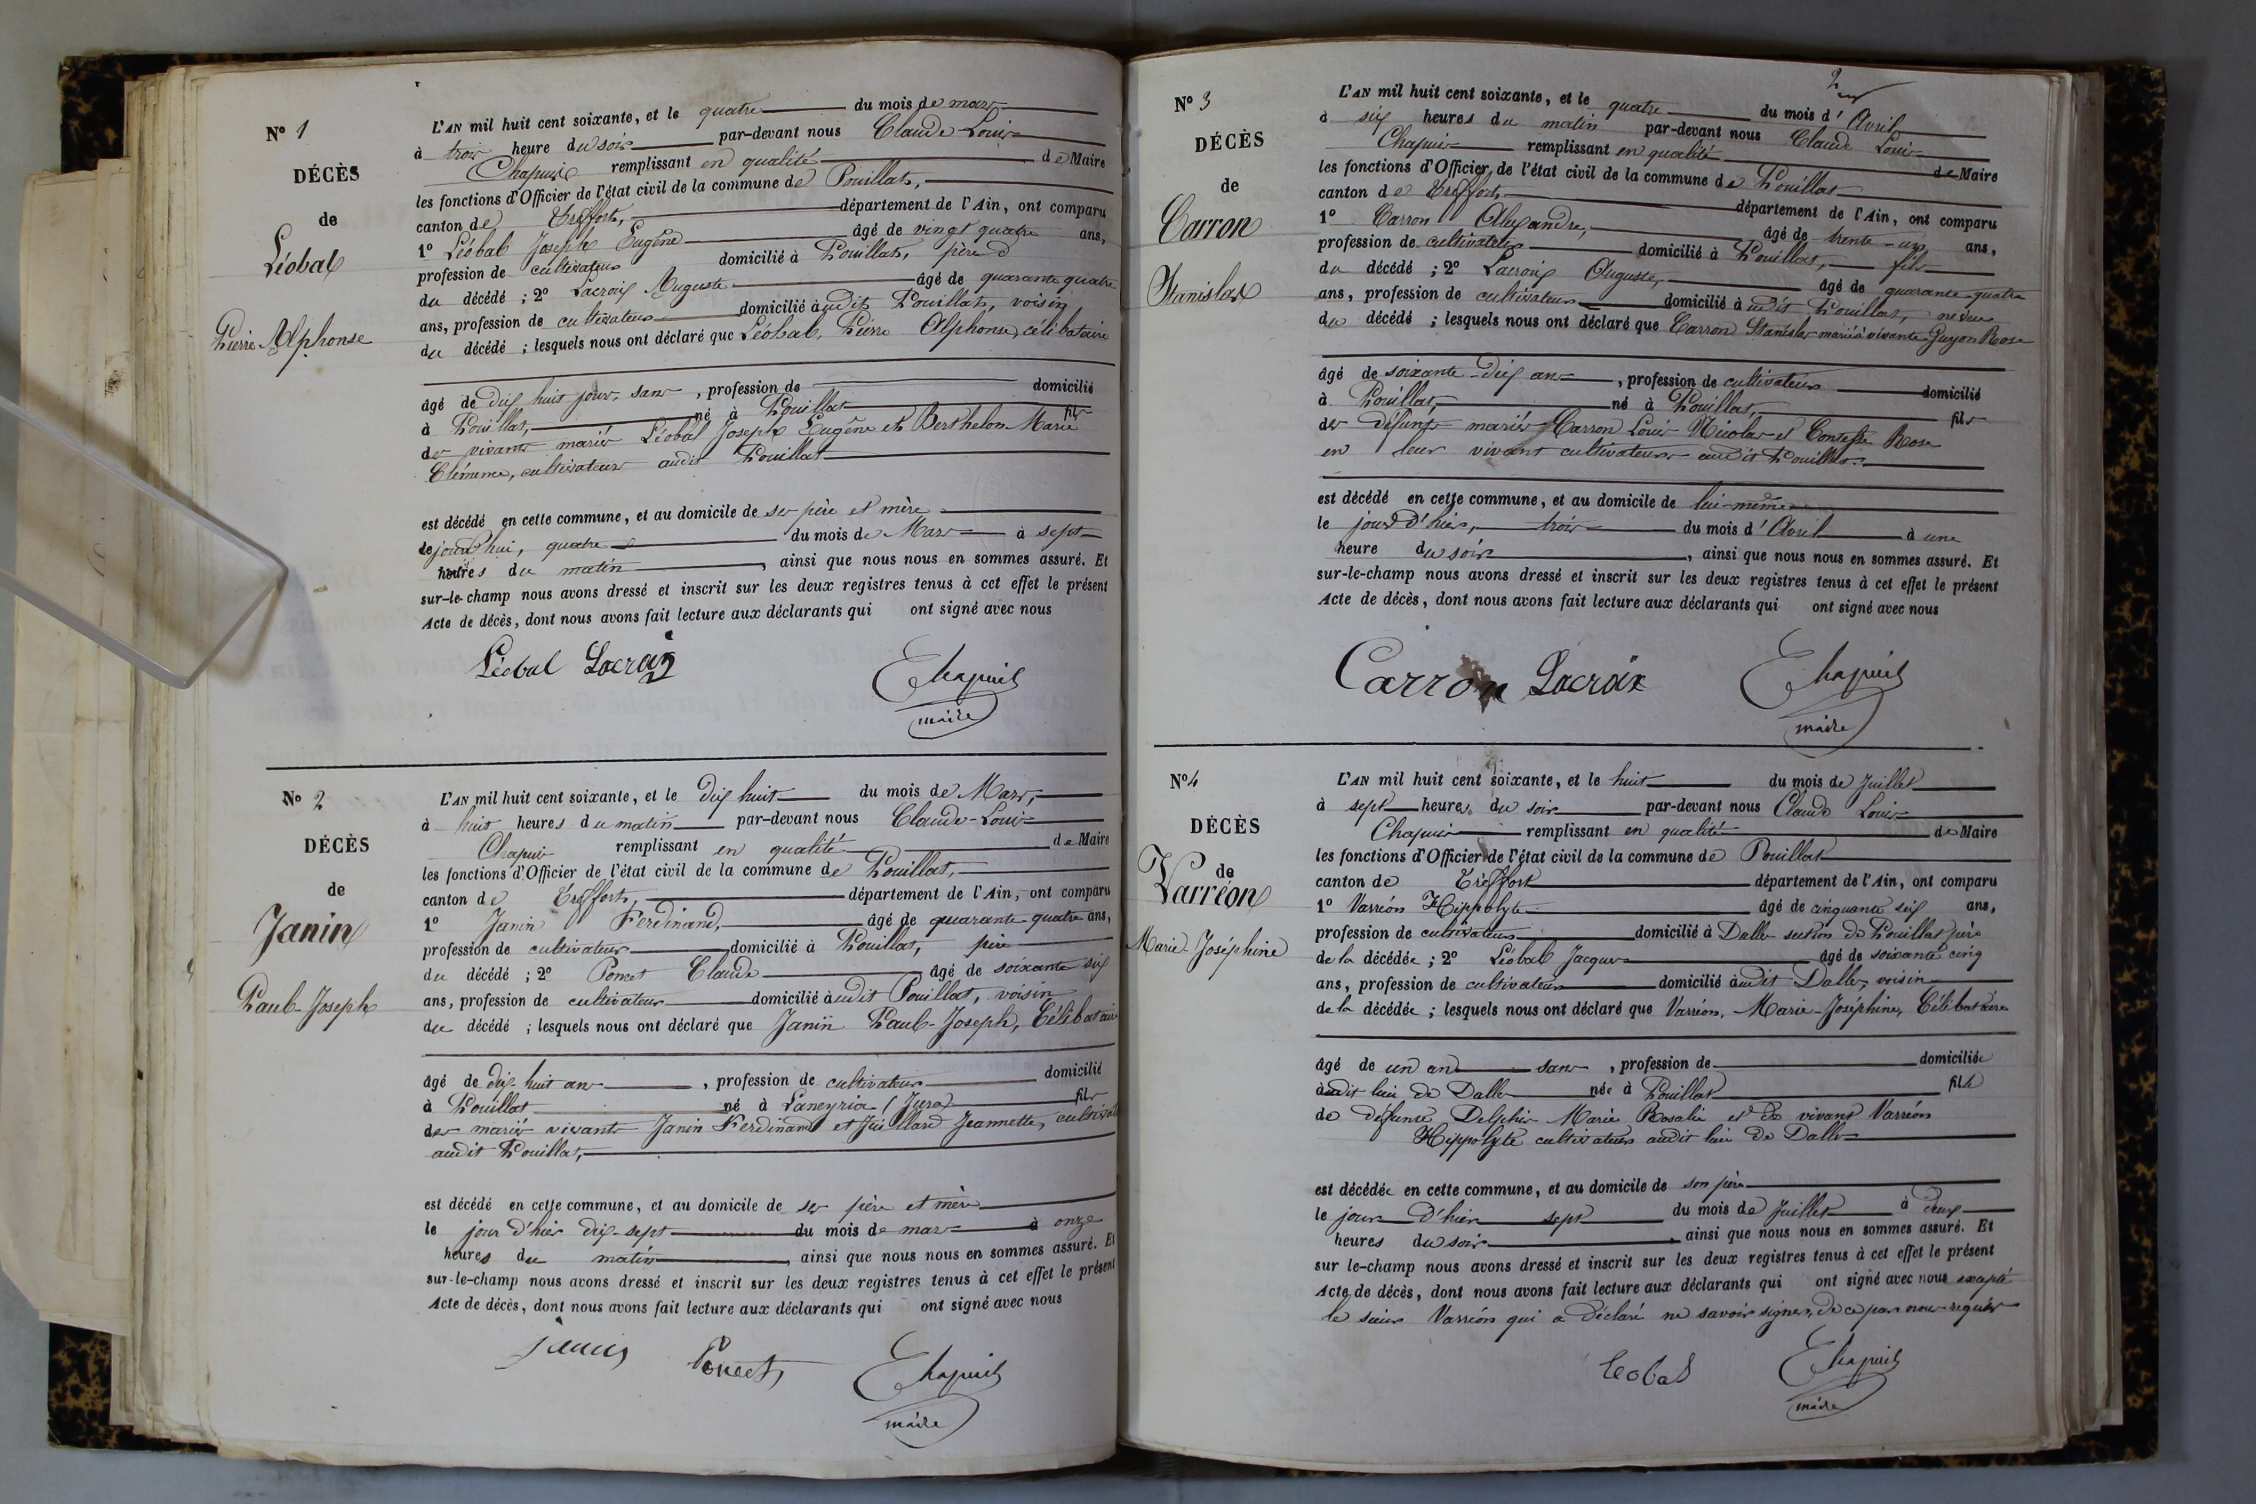 N° 1
DÉCÈS
de
Léobal
Pierre Alphonse
L'AN mil huit cent soixante, et le quatre du mois de mars
à trois heure du soir par-devant nous Claude-Louis
Chapuis remplissant en qualité de Maire
les fonctions d'Officier de l'état civil de la commune de Pouillat,
canton de Treffort, département de l'Ain, ont comparu
1° Léobal Joseph Eugène âgé de vingt quatre ans,
profession de cultivateur domicilié à Pouillat, père
du décédé ; 2° Lacroix Auguste âgé de quarante quatre
ans, profession de cultivateur domicilié audit Pouillat, voisin
du décédé ; lesquels nous ont déclaré que Léobal, Pierre Alphonse, célibataire
âgé de dix huit jours, sans , profession de domicilié
à Pouillat, né à Pouillat fils
des vivants mariés Léobal Joseph Eugène et Berthelon Marie
Clémence, cultivateurs audit Pouillat
est décédé en cette commune, et au domicile de ses père et mère
le jourd'hui, quatre du mois de Mars à sept
heures du matin , ainsi que nous nous en sommes assuré. Et
sur-le-champ nous avons dressé et inscrit sur les deux registres tenus à cet effet le présent
Acte de décès, dont nous avons fait lecture aux déclarants qui ont signé avec nous
Léobal Lacroix Chapuis
maire
N° 2
DÉCÈS
de
Janin
Paul-Joseph
L'AN mil huit cent soixante, et le dix huit du mois de Mars,
à huit heures du matin par-devant nous Claude-Louis
Chapuis remplissant en qualité de Maire
les fonctions d'Officier de l'état civil de la commune de Pouillat,
canton de Treffort, département de l'Ain, ont comparu
1° Janin Ferdinand, âgé de quarante quatre ans,
profession de cultivateur domicilié à Pouillat, père
du décédé ; 2° Poncet Claude âgé de soixante six
ans, profession de cultivateur domicilié audit Pouillat, voisin
du décédé ; lesquels nous ont déclaré que Janin Paul-Joseph, Célibataire
âgé de dix huit ans , profession de cultivateur domicilié
à Pouillat né à Laneyria (Jura) fils
des mariés vivants Janin Ferdinand et Juillard Jeannette, cultivat
audit Pouillat,
est décédé en cette commune, et au domicile de ses père et mère
le jour d'hier dix-sept du mois de mars à onze
heures du matin , ainsi que nous nous en sommes assuré. Et
sur-le-champ nous avons dressé et inscrit sur les deux registres tenus à cet effet le présent
Acte de décès, dont nous avons fait lecture aux déclarants qui ont signé avec nous
janin Poncet Chapuis
maire
N° 3
DÉCÈS
de
Carron
Stanislas
L'AN mil huit cent soixante, et le quatre du mois d'Avril
à six heures du matin par-devant nous Claude Louis
Chapuis remplissant en qualité de Maire
les fonctions d'Officier de l'état civil de la commune de Pouillat
canton de Treffort, département de l'Ain, ont comparu
1° Carron Alexandre, âgé de trente-un ans,
profession de cultivateur domicilié à Pouillat, fils
du décédé ; 2° Lacroix Auguste, âgé de quarante-quatre
ans, profession de cultivateur domicilié audit Pouillat, neveu
du décédé ; lesquels nous ont déclaré que Carron Stanislas marié à vivante Guyon Rose
âgé de soixante-dix ans , profession de cultivateur domicilié
à Pouillat, né à Pouillat, fils
des défunts mariés Carron Louis Nicolas et Contesse Rose
en leur vivant cultivateurs audit Pouillat.
est décédé en cette commune, et au domicile de lui-même
le jour d'hier, trois du mois d'Avril à une
heure du soir , ainsi que nous nous en sommes assuré. Et
sur-le-champ nous avons dressé et inscrit sur les deux registres tenus à cet effet le présent
Acte de décès, dont nous avons fait lecture aux déclarants qui ont signé avec nous
Carron Lacroix Chapuis
maire
N° 4
DÉCÈS
de
Varréon
Marie-Joséphine
L'AN mil huit cent soixante, et le huit du mois de Juillet
à sept heures du soir par-devant nous Claude Louis
Chapuis remplissant en qualité de Maire
les fonctions d'Officier de l'état civil de la commune de Pouillat
canton de Tréffort département de l'Ain, ont comparu
1° Varréon Hippolyte âgé de cinquante six ans,
profession de cultivateur domicilié à Dalle section de Pouillat père
de la décédée ; 2° Léobal Jacques âgé de soixante cinq
ans, profession de cultivateur domicilié audit Dalle, voisin
de la décédée ; lesquels nous ont déclaré que Varréon, Marie-Joséphine, Célibataire
âgé de un an sans , profession de domiciliée
audit lieu de Dalle née à Pouillat fille
de défunte Delphis Marie Rosalie et de vivant Varréon
Hippolyte cultivateur audit lieu de Dalle
est décédée en cette commune, et au domicile de son père
le jour d'hier sept du mois de Juillet à deux
heures du soir , ainsi que nous nous en sommes assuré. Et
sur le-champ nous avons dressé et inscrit sur les deux registres tenus à cet effet le présent
Acte de décès, dont nous avons fait lecture aux déclarants qui ont signé avec nous excepté
le sieur Varréon qui a déclaré ne savoir signer, de ce par nous requis
Leobal Chapuis
maire